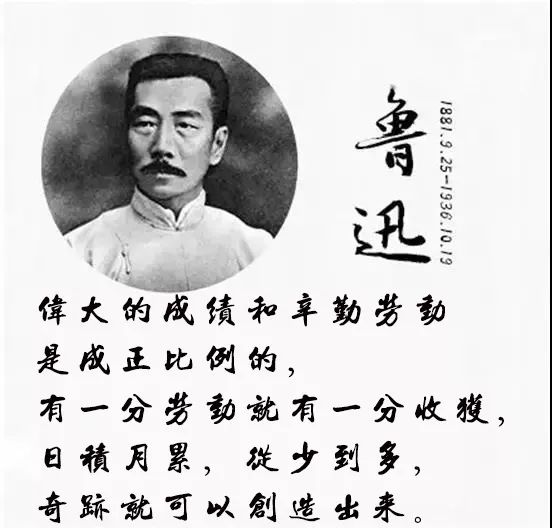 魯迅
1881.9.25-1936.10.19
偉大的成績和辛勤勞動
是成正比例的，
有一分勞動就有一分收獲，
日積月累，從少到多，
奇跡就可以創造出來。